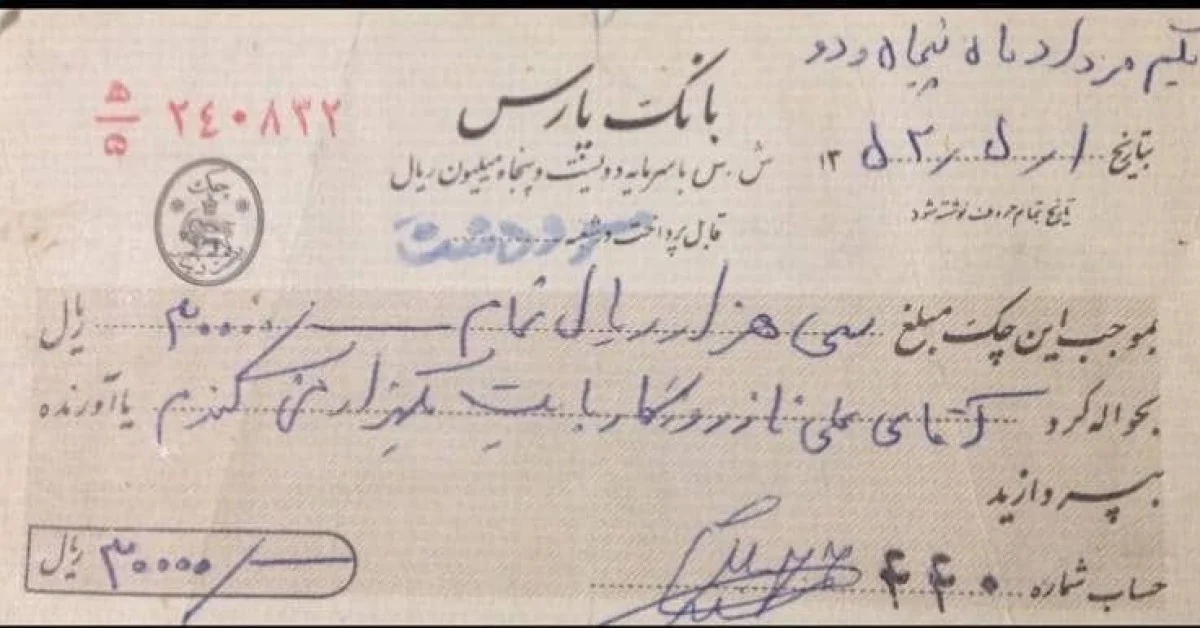 یکم مرداد ماه پنجاه و دو
بانک پارس
۵/۵ ۲۴۰۸۳۲
بتاریخ ۱ ر ۵ ر ۵۲ ۱۳
ش.س با سرمایه دویست و پنجاه میلیون ریال
تاریخ تمام حروف نوشته شود
چک
قابل پرداخت در شعبه مرودشت
بموجب این چک مبلغ سی هزار ریال تمام ۳۰۰۰۰/ ریال
بحواله کرد آقای علی نازروزگار بابت یکهزار من گندم یا آورنده
بپردازید
حساب شماره ۴۴۰
۳۰۰۰۰/ ریال